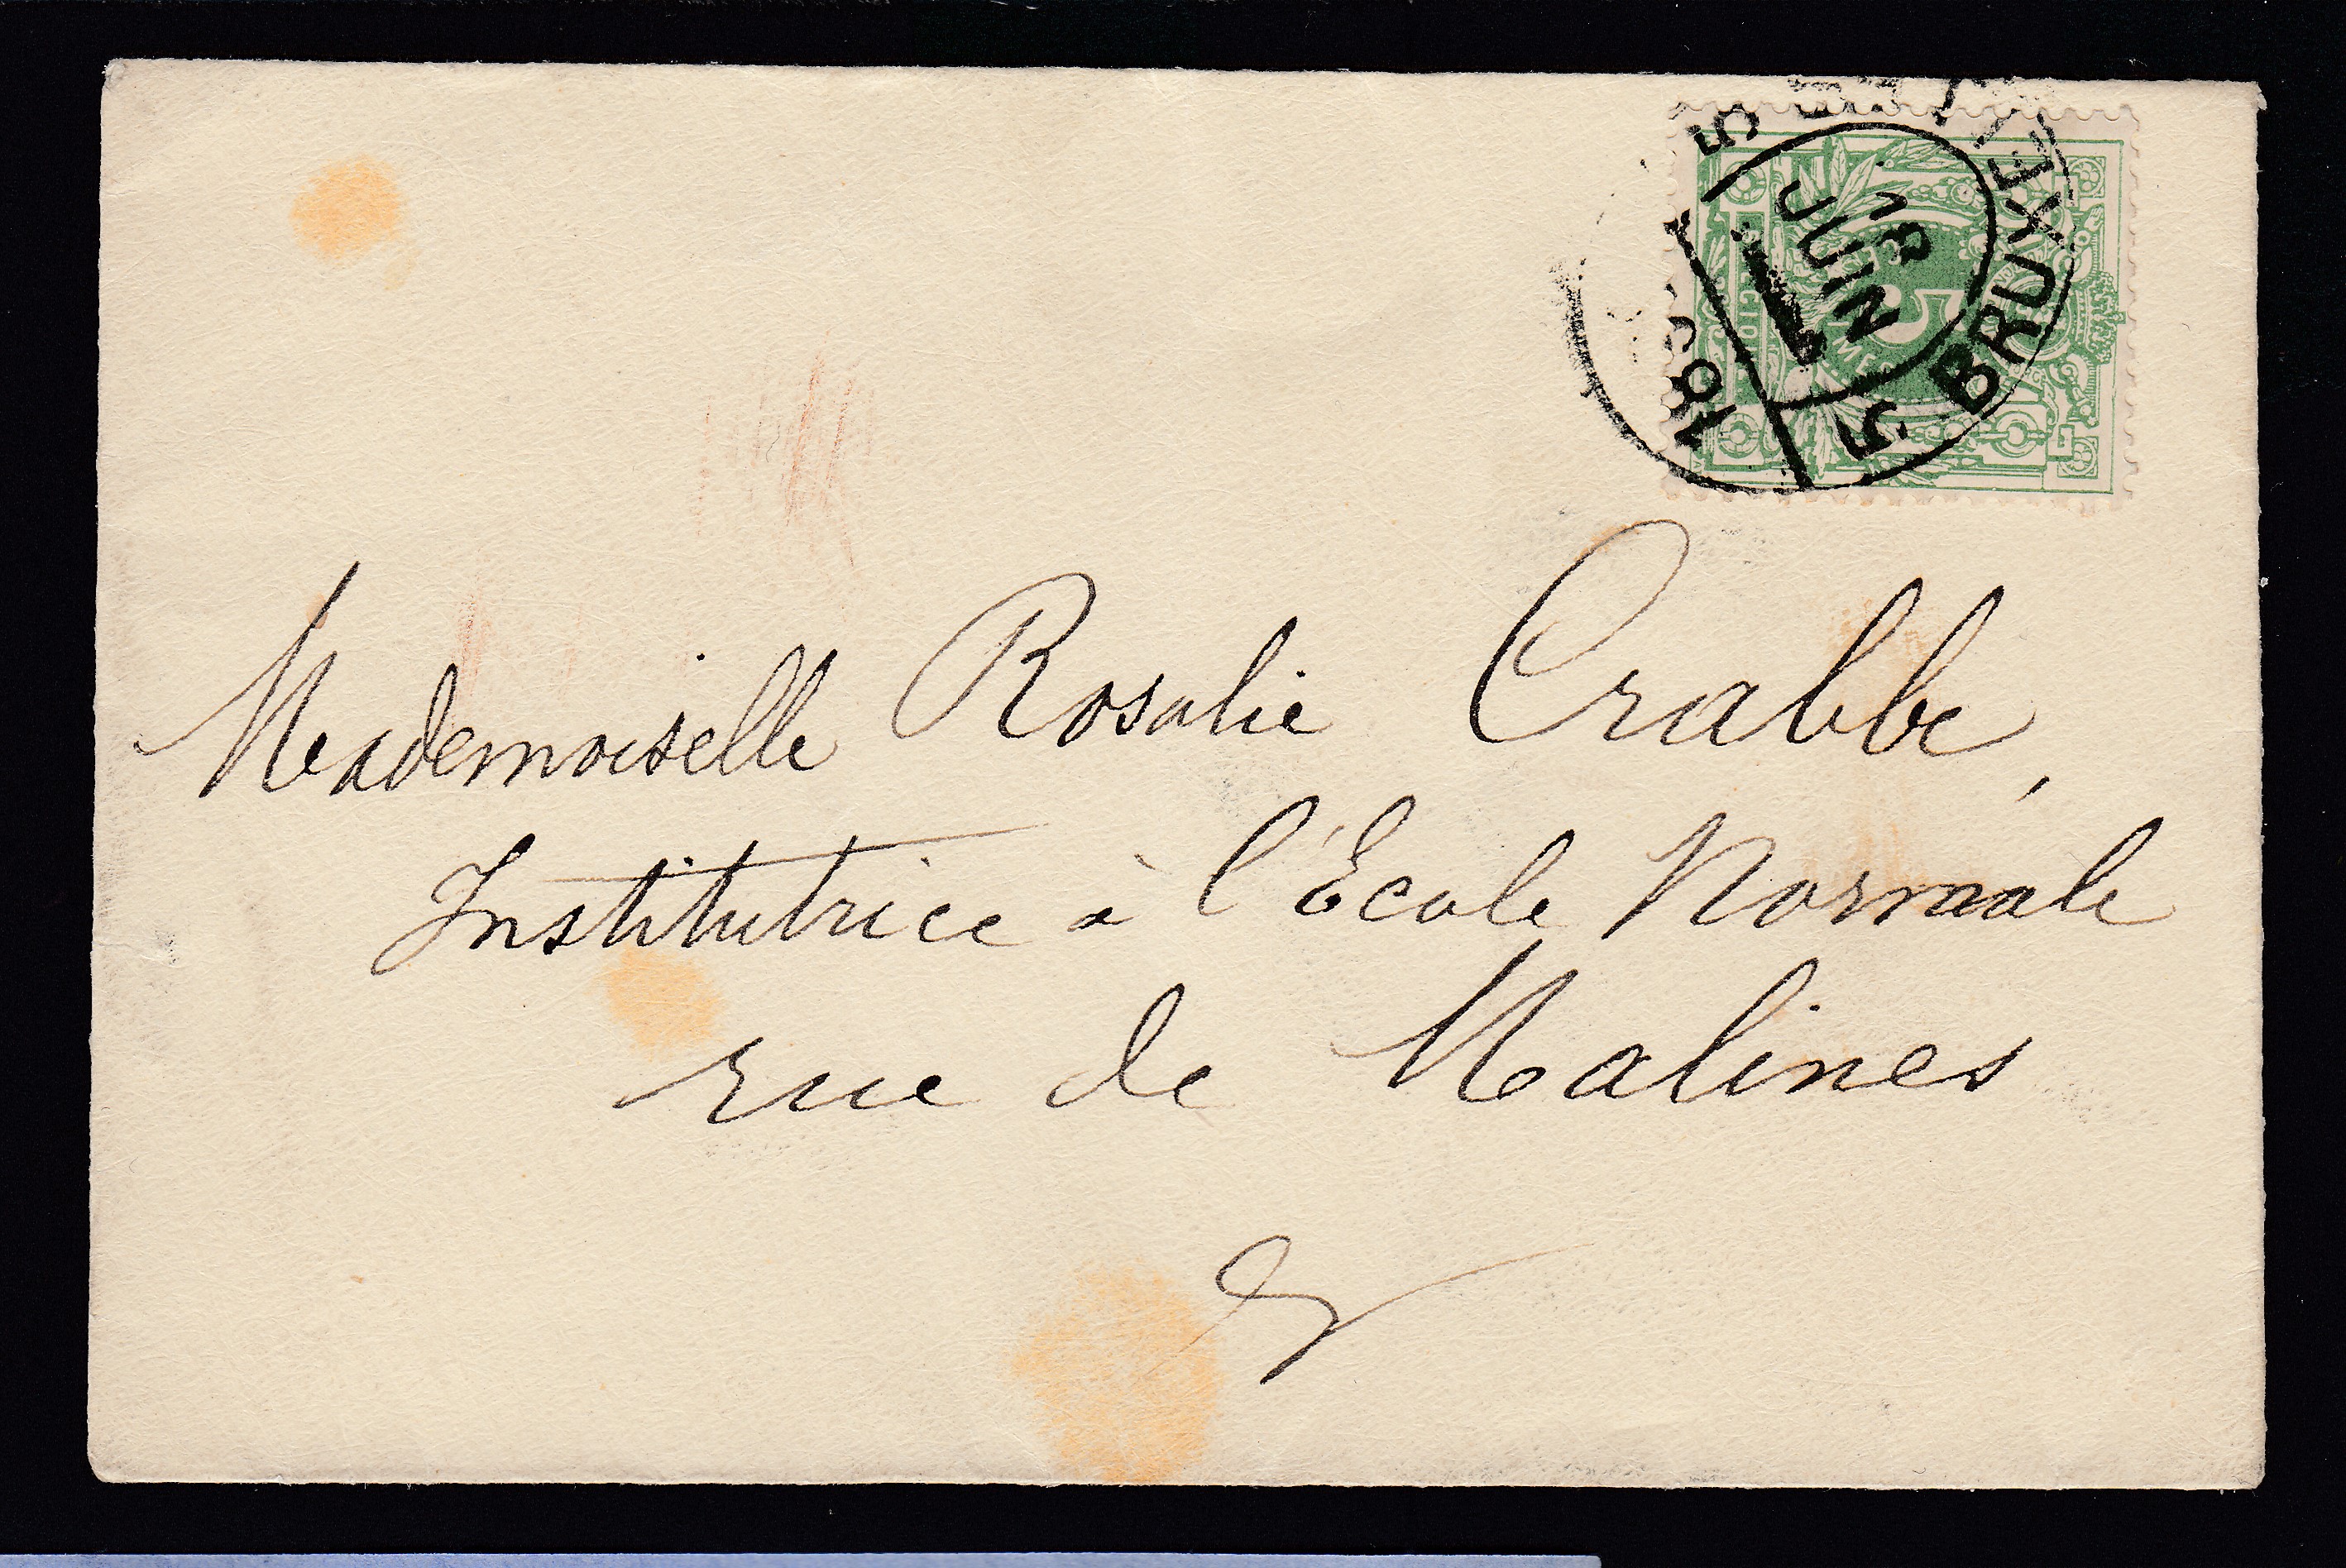 BRUXEL
5
JUIN
18
5
Mademoiselle Rosalie Crabbé,
Institutrice à l'École Normale
rue de Malines